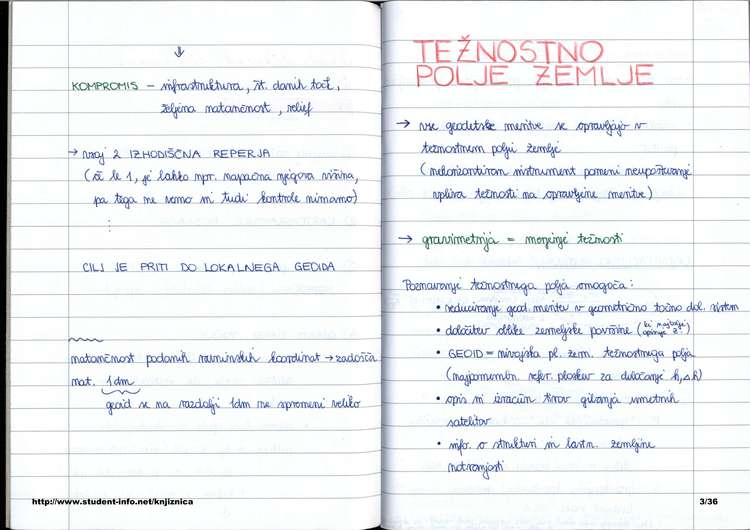 KOMPROMIS – infrastruktura, št. danih točk,
željena natančnost, relief
→ vsaj 2 IZHODIŠČNA REPERJA
(če le 1, je lahko npr. napačna njegova višina,
pa tega ne vemo in tudi kontrole nimamo)
⋮
CILJ JE PRITI DO LOKALNEGA GEOIDA
natančnost podanih ravninskih koordinat → zadošča
nat. 1dm
geoid se na razdalji 1dm ne spremeni veliko
http://www.student-info.net/knjiznica
TEŽNOSTNO
POLJE ZEMLJE
→ vse geodetske meritve se opravljajo v
težnostnem polju zemlje
(nehorizontiran instrument pomeni neupoštevanje
vpliva težnosti na opravljene meritve)
→ gravimetrija = merjenje težnosti
Poznavanje težnostnega polja omogoča:
• reduciranje geod. meritev v geometrično točno dol. sistem
• določitev oblike zemeljske površine (ki najbolje
opisuje Z)
• GEOID = nivojska pl. zem. težnostnega polja
(najpomembn. refer. ploskev za določanje h, Δh)
• opis in izračun tirov gibanja umetnih
satelitov
• info. o strukturi in lastn. zemljine
notranjosti
3/36